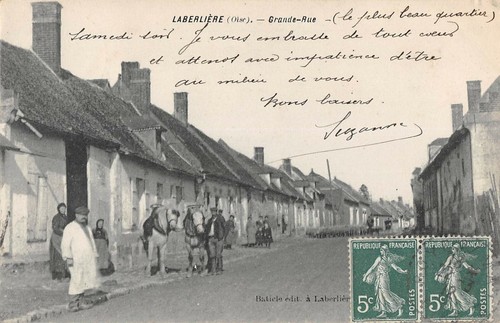 LABERLIÈRE (Oise). — Grande-Rue — (le plus beau quartier)
Samedi soir. Je vous embrasse de tout cœur
et attends avec impatience d'être
au milieu de vous.
Bons baisers.
Suzanne
RÉPUBLIQUE FRANÇAISE RÉPUBLIQUE FRANÇAISE
5c POSTES 5c POSTES
Baticle édit. à Laberlière